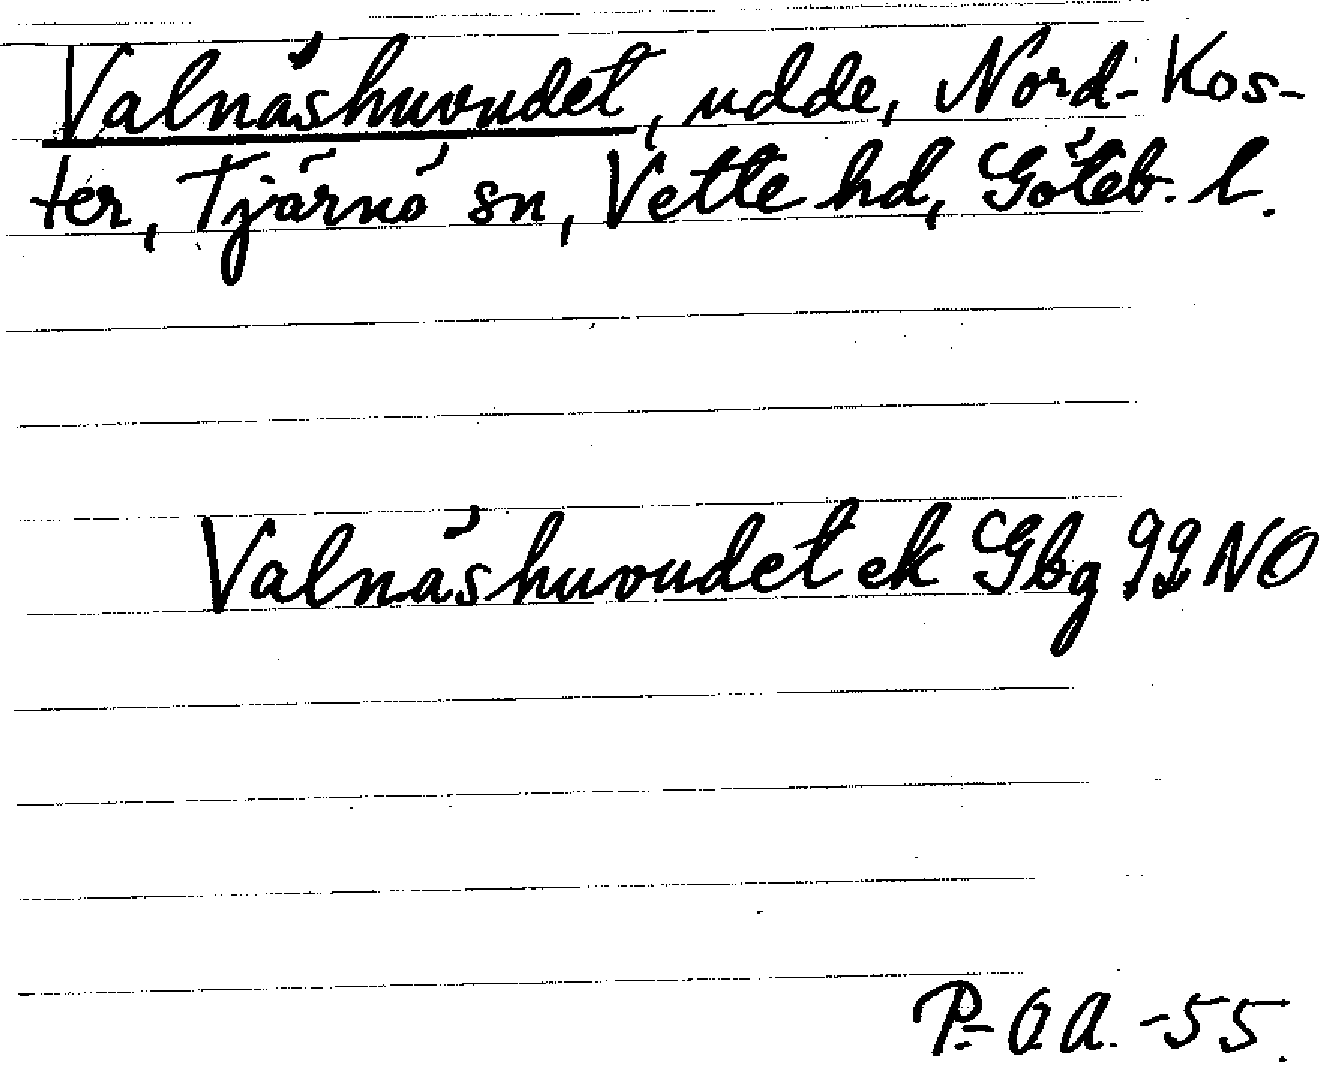 Valnäshuvudet, udde, Nord-Kos-
ter, Tjärnö sn, Vette hd, Göteb. l.
Valnäshuvudet ek Gbg 92 NO
P.-O.A. -55.